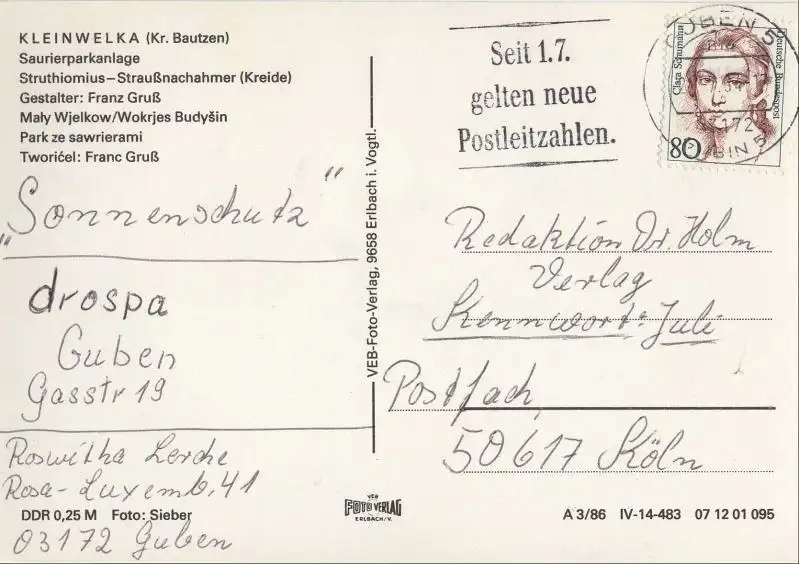 KLEINWELKA (Kr. Bautzen)
Saurierparkanlage
Struthiomius–Straußnachahmer (Kreide)
Gestalter: Franz Gruß
Mały Wjelkow/Wokrjes Budyšin
Park ze sawrierami
Tworićel: Franc Gruß
„Sonnenschutz"
drospa
Guben
Gasstr 19
Roswitha Lerche
Rosa-Luxemb. 41
DDR 0,25 M Foto: Sieber
03172 Guben
VEB-Foto-Verlag, 9658 Erlbach i. Vogtl.
VEB
FOTO VERLAG
ERLBACH/V.
Seit 1.7.
gelten neue
Postleitzahlen.
GUBEN 5
03172
GUBIN 5
Clara Schumann
Deutsche Bundespost
80
Redaktion Dr. Holm
Verlag
Kennwort: Juli
Postfach
50617 Köln
A 3/86 IV-14-483 07 12 01 095